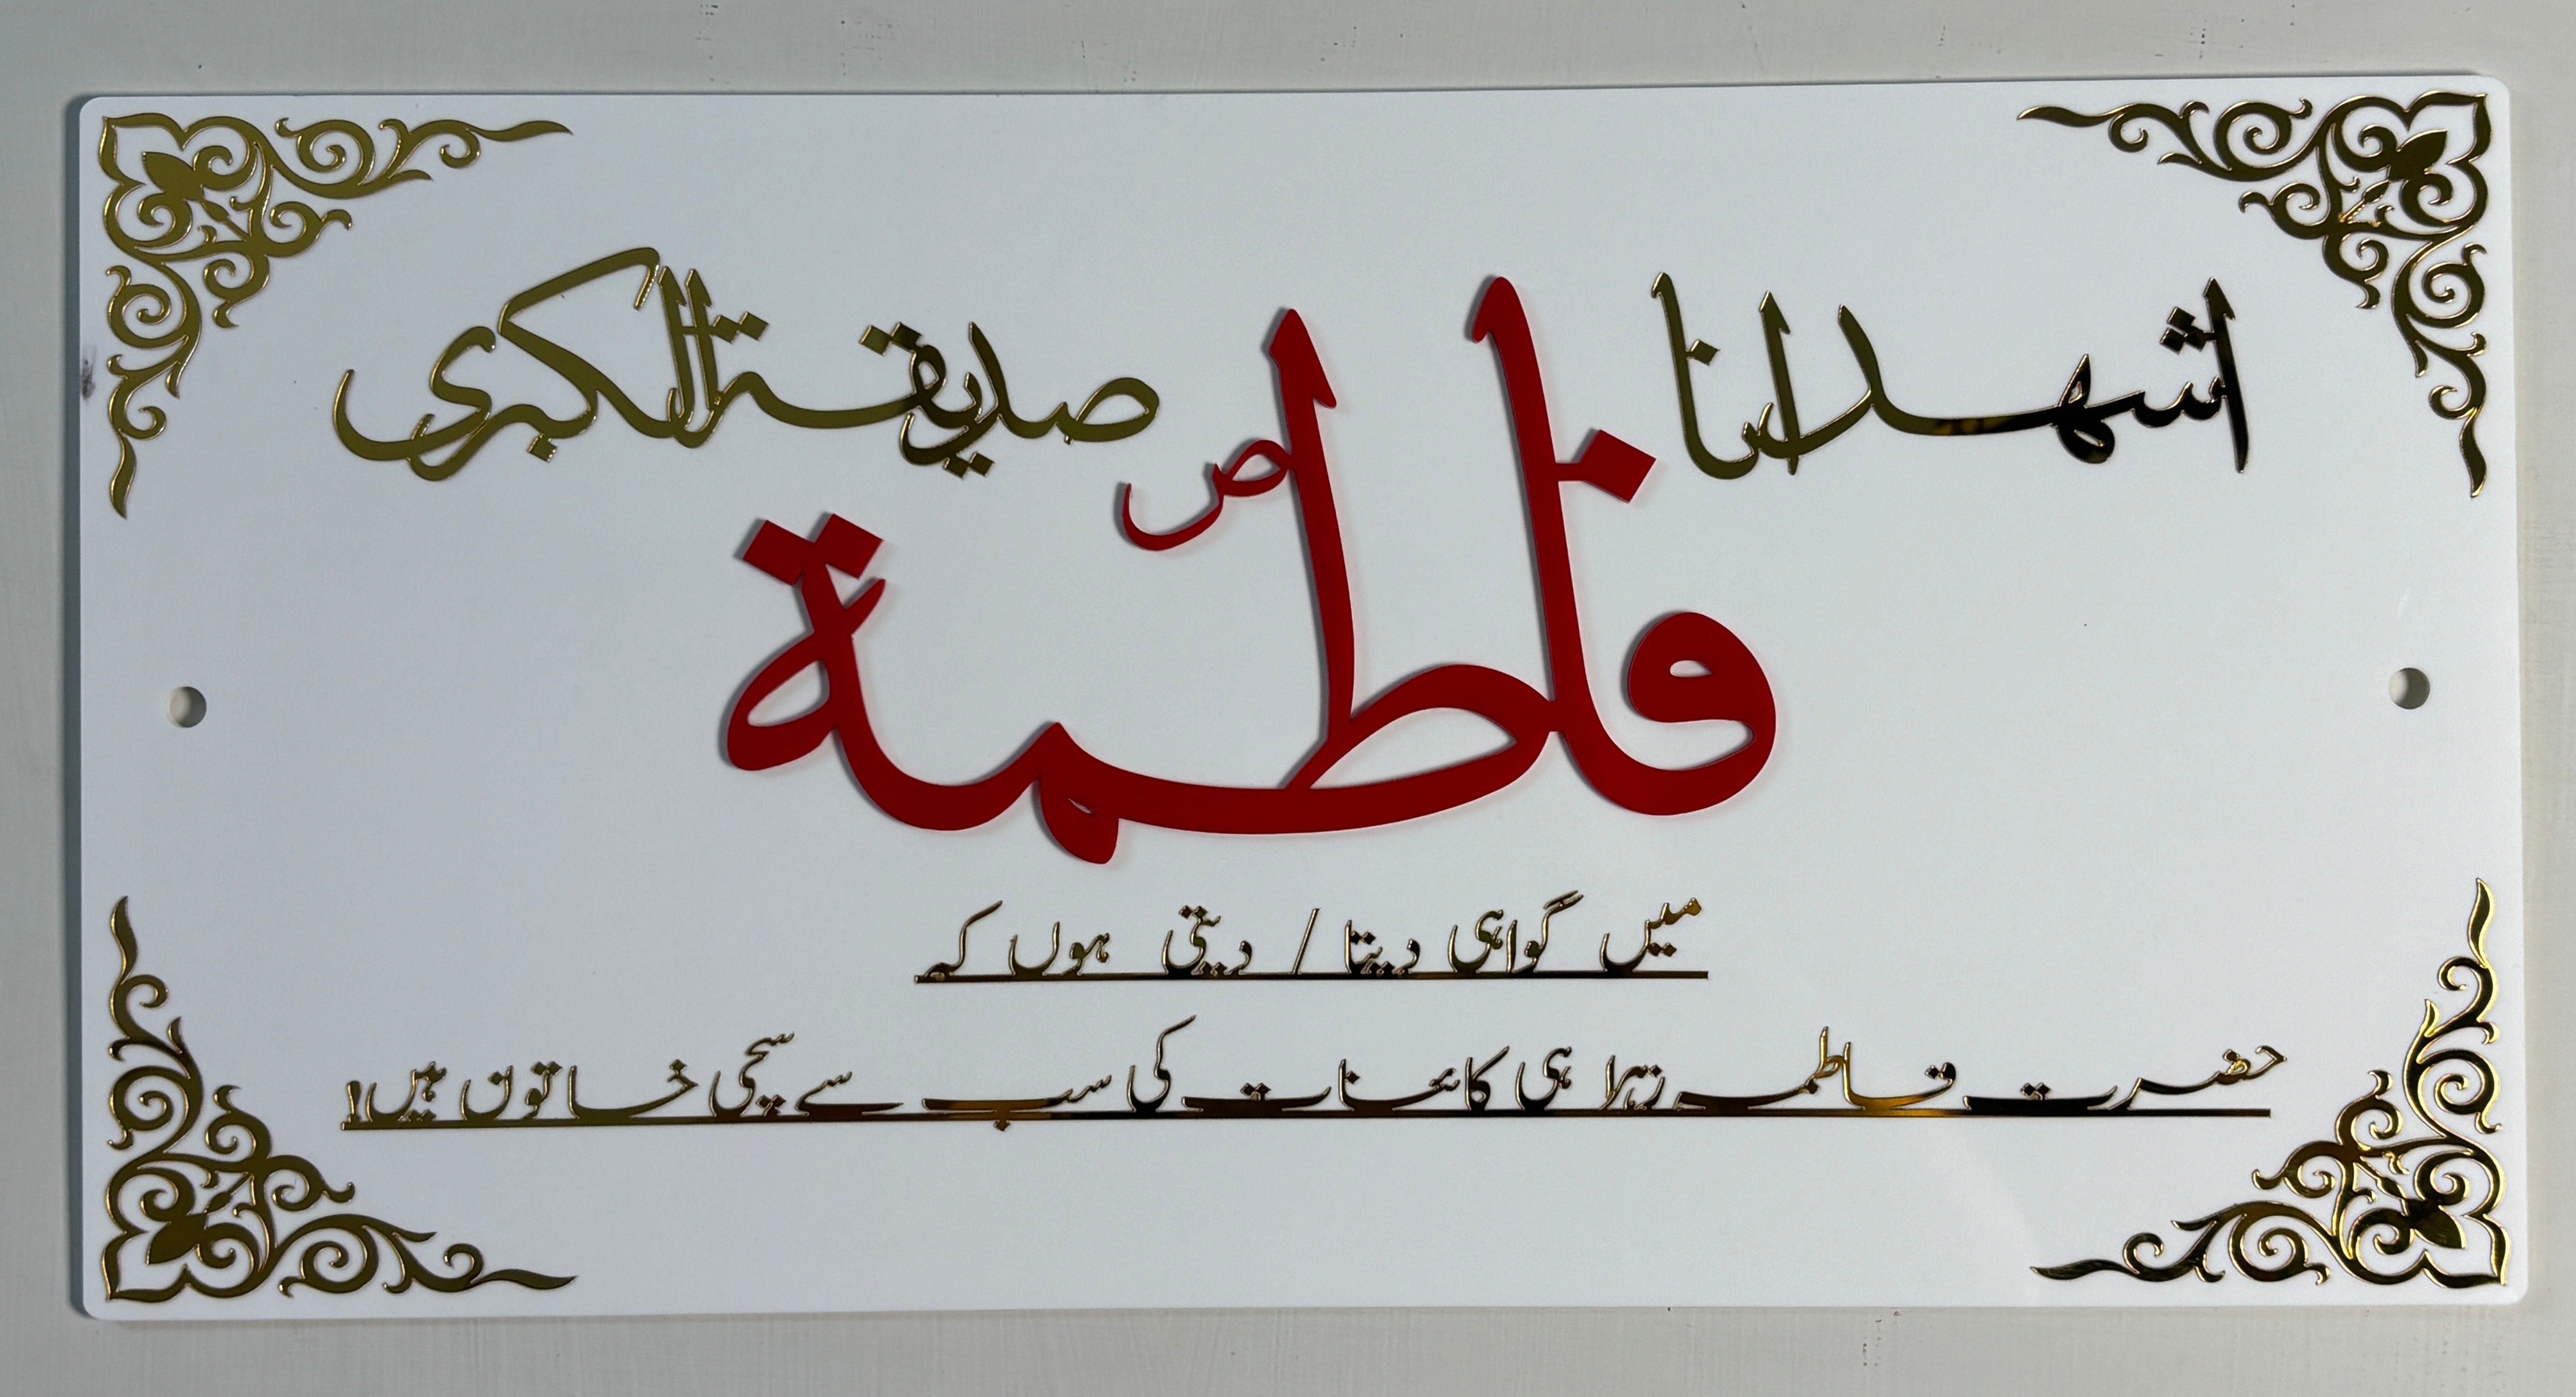 اشهد ان فاطمة ص صديقة الكبرى
میں گواہی دیتا / دیتی ہوں کہ
حضرت فاطمہ زہرا ہی کائنات کی سب سے سچی خاتون ہیں!